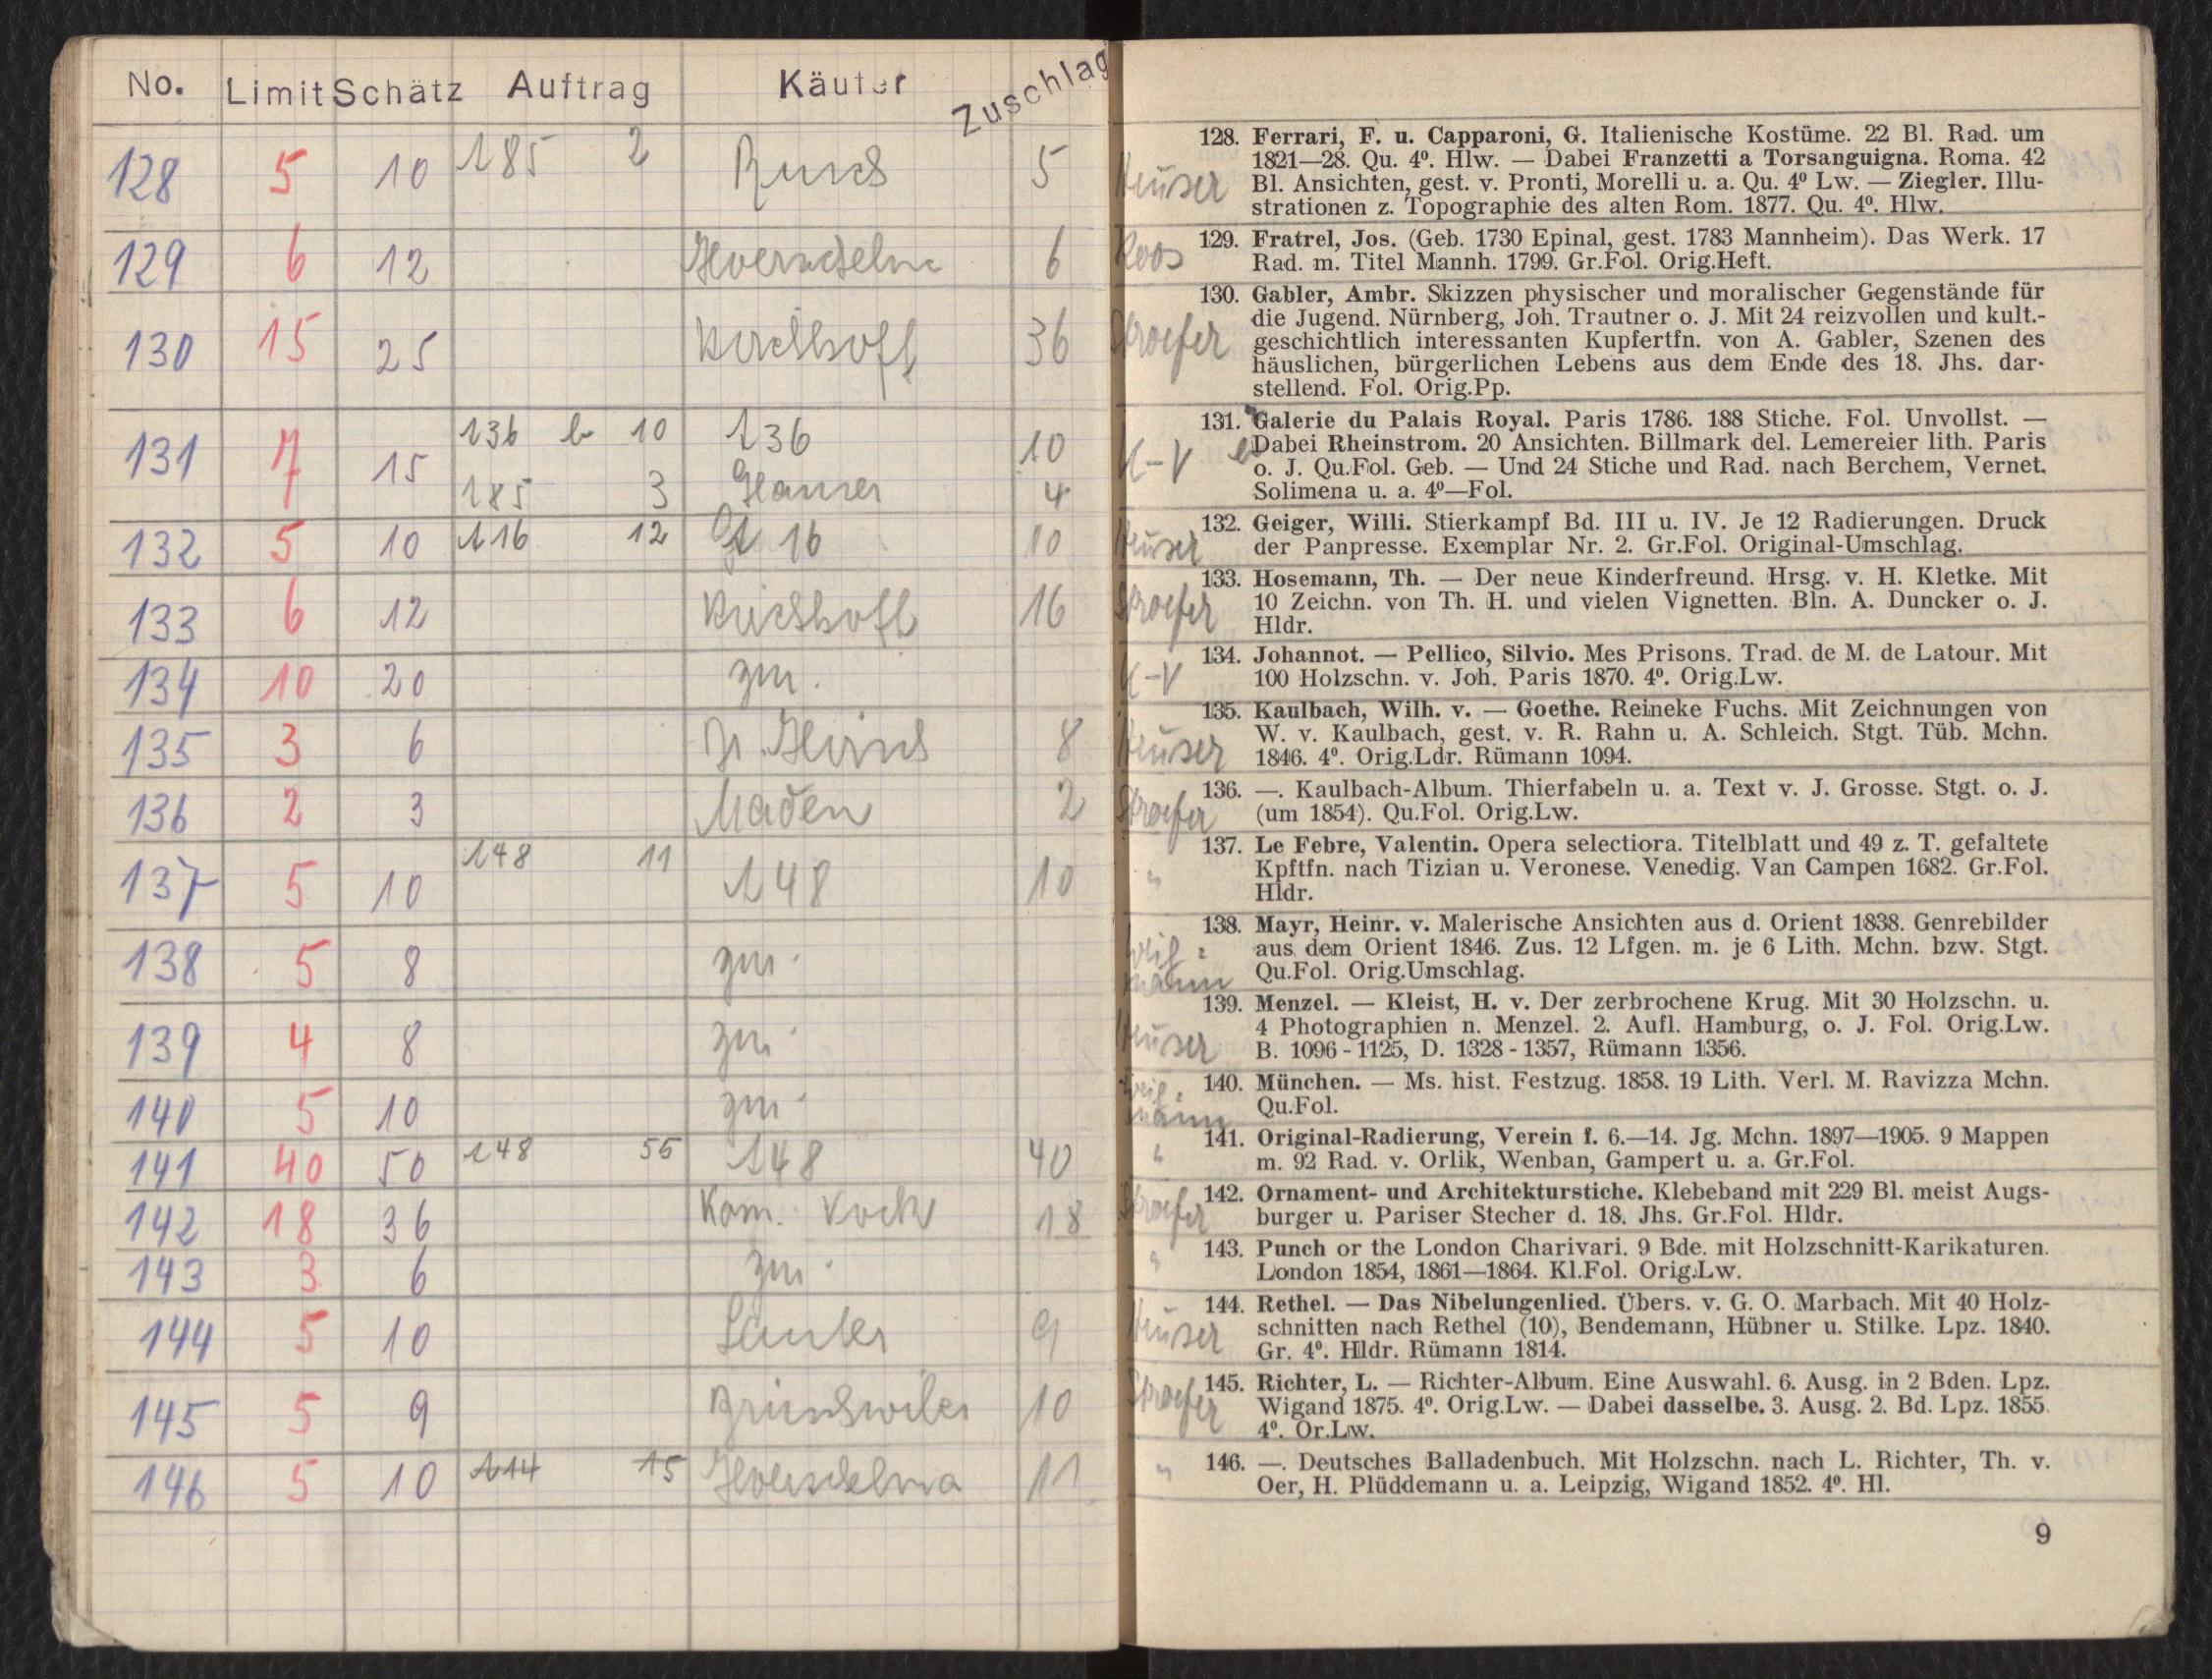 No. Limit Schätz Auftrag Käufer Zuschlag
128 5 10 185 2 5
129 6 12 6
130 15 25 Kirchhoff 36
131 7 15 136 b 10 136 10
185 3 4
132 5 10 116 12 16 10
133 6 12 Kirchhoff 16
134 10 20 zur.
135 3 6 8
136 2 3 Maden 2
137 5 10 148 11 148 10
138 5 8 zur.
139 4 8 zur.
140 5 10 zur.
141 40 50 148 55 148 40
142 18 36 Kom. Koch 18
143 3 6 zur.
144 5 10 9
145 5 9 10
146 5 10 114 15 11
Heuser
128. Ferrari, F. u. Capparoni, G. Italienische Kostüme. 22 Bl. Rad. um
1821—28. Qu. 4⁰. Hlw. — Dabei Franzetti a Torsanguigna. Roma. 42
Bl. Ansichten, gest. v. Pronti, Morelli u. a. Qu. 4⁰ Lw. — Ziegler. Illu-
strationen z. Topographie des alten Rom. 1877. Qu. 4⁰. Hlw.
Roos
129. Fratrel, Jos. (Geb. 1730 Epinal, gest. 1783 Mannheim). Das Werk. 17
Rad. m. Titel Mannh. 1799. Gr.Fol. Orig.Heft.
Stroefer
130. Gabler, Ambr. Skizzen physischer und moralischer Gegenstände für
die Jugend. Nürnberg, Joh. Trautner o. J. Mit 24 reizvollen und kult.-
geschichtlich interessanten Kupfertfn. von A. Gabler, Szenen des
häuslichen, bürgerlichen Lebens aus dem Ende des 18. Jhs. dar-
stellend. Fol. Orig.Pp.
K-V
131. a Galerie du Palais Royal. Paris 1786. 188 Stiche. Fol. Unvollst. —
b Dabei Rheinstrom. 20 Ansichten. Billmark del. Lemereier lith. Paris
o. J. Qu.Fol. Geb. — Und 24 Stiche und Rad. nach Berchem, Vernet,
Solimena u. a. 4⁰—Fol.
Heuser
132. Geiger, Willi. Stierkampf Bd. III u. IV. Je 12 Radierungen. Druck
der Panpresse. Exemplar Nr. 2. Gr.Fol. Original-Umschlag.
Stroefer
133. Hosemann, Th. — Der neue Kinderfreund. Hrsg. v. H. Kletke. Mit
10 Zeichn. von Th. H. und vielen Vignetten. Bln. A. Duncker o. J.
Hldr.
K-V
134. Johannot. — Pellico, Silvio. Mes Prisons. Trad. de M. de Latour. Mit
100 Holzschn. v. Joh. Paris 1870. 4⁰. Orig.Lw.
Heuser
135. Kaulbach, Wilh. v. — Goethe. Reineke Fuchs. Mit Zeichnungen von
W. v. Kaulbach, gest. v. R. Rahn u. A. Schleich. Stgt. Tüb. Mchn.
1846. 4⁰. Orig.Ldr. Rümann 1094.
Stroefer
136. —. Kaulbach-Album. Thierfabeln u. a. Text v. J. Grosse. Stgt. o. J.
(um 1854). Qu.Fol. Orig.Lw.
"
137. Le Febre, Valentin. Opera selectiora. Titelblatt und 49 z. T. gefaltete
Kpftfn. nach Tizian u. Veronese. Venedig. Van Campen 1682. Gr.Fol.
Hldr.
138. Mayr, Heinr. v. Malerische Ansichten aus d. Orient 1838. Genrebilder
aus dem Orient 1846. Zus. 12 Lfgen. m. je 6 Lith. Mchn. bzw. Stgt.
Qu.Fol. Orig.Umschlag.
Heuser
139. Menzel. — Kleist, H. v. Der zerbrochene Krug. Mit 30 Holzschn. u.
4 Photographien n. Menzel. 2. Aufl. Hamburg, o. J. Fol. Orig.Lw.
B. 1096 - 1125, D. 1328 - 1357, Rümann 1356.
140. München. — Ms. hist. Festzug. 1858. 19 Lith. Verl. M. Ravizza Mchn.
Qu.Fol.
"
141. Original-Radierung, Verein f. 6.—14. Jg. Mchn. 1897—1905. 9 Mappen
m. 92 Rad. v. Orlik, Wenban, Gampert u. a. Gr.Fol.
Stroefer
142. Ornament- und Architekturstiche. Klebeband mit 229 Bl. meist Augs-
burger u. Pariser Stecher d. 18. Jhs. Gr.Fol. Hldr.
"
143. Punch or the London Charivari. 9 Bde. mit Holzschnitt-Karikaturen.
London 1854, 1861—1864. Kl.Fol. Orig.Lw.
Heuser
144. Rethel. — Das Nibelungenlied. Übers. v. G. O. Marbach. Mit 40 Holz-
schnitten nach Rethel (10), Bendemann, Hübner u. Stilke. Lpz. 1840.
Gr. 4⁰. Hldr. Rümann 1814.
Stroefer
145. Richter, L. — Richter-Album. Eine Auswahl. 6. Ausg. in 2 Bden. Lpz.
Wigand 1875. 4⁰. Orig.Lw. — Dabei dasselbe. 3. Ausg. 2. Bd. Lpz. 1855.
4⁰. Or.Lw.
"
146. —. Deutsches Balladenbuch. Mit Holzschn. nach L. Richter, Th. v.
Oer, H. Plüddemann u. a. Leipzig, Wigand 1852. 4⁰. Hl.
9